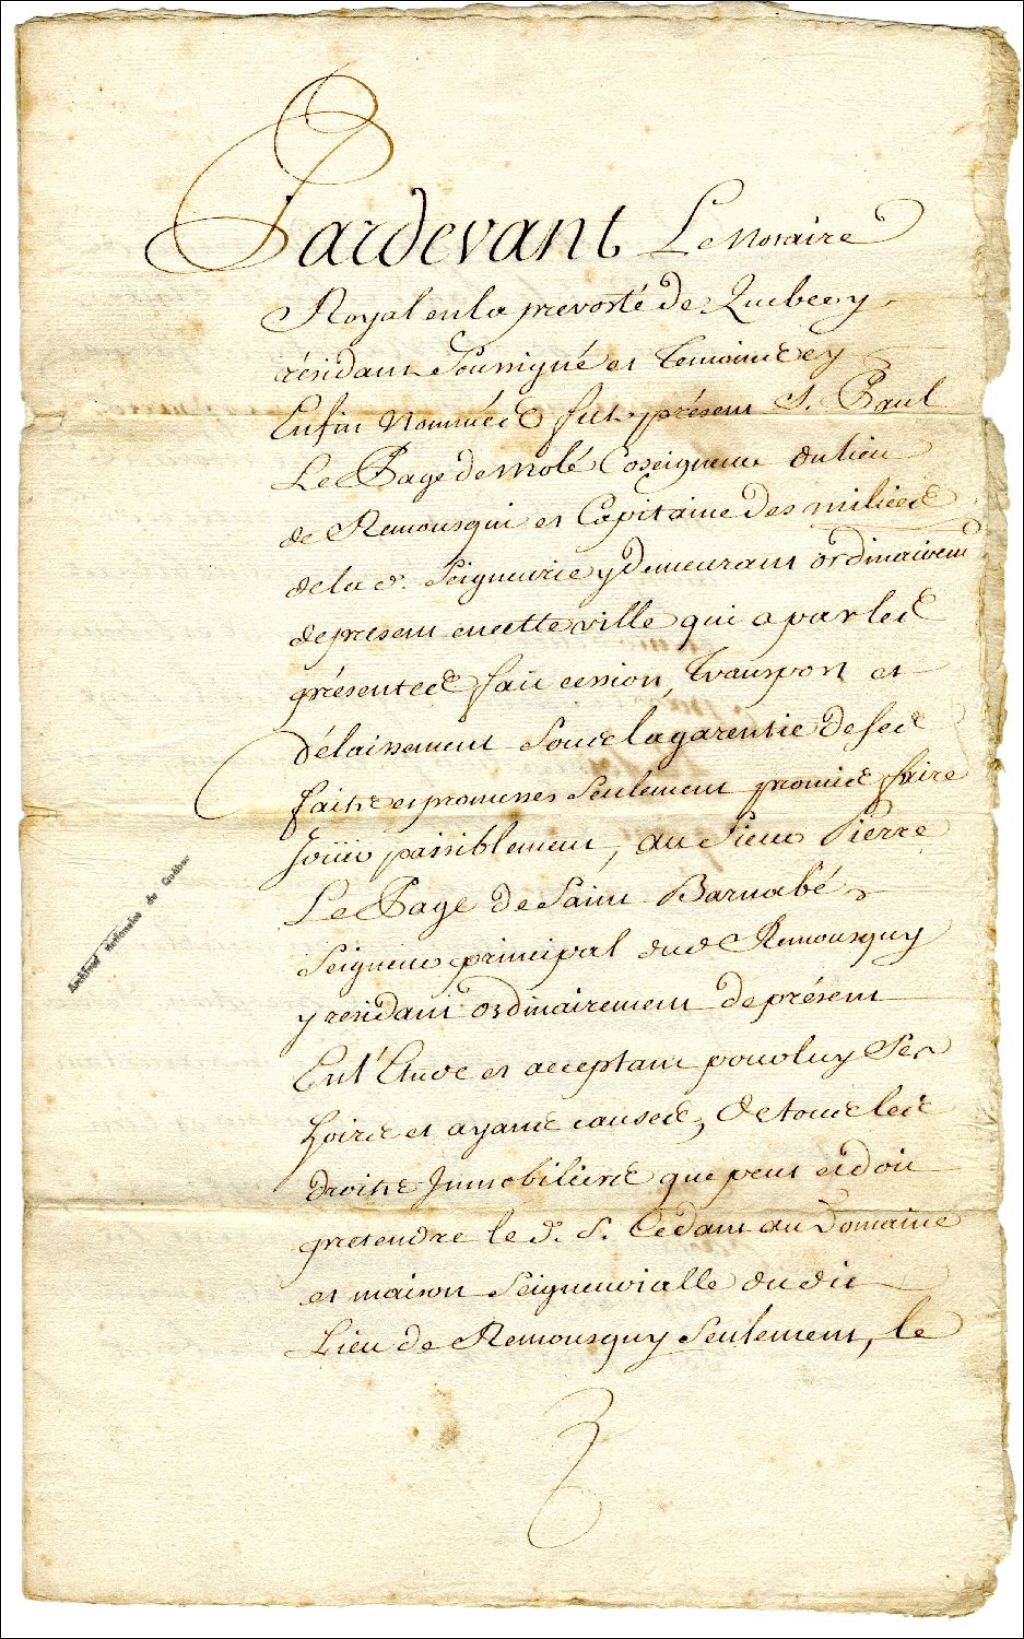 Pardevant Le Notaire
Royal en la prevosté de Quebecq
résidant Soussigné et temoins ey
Enfin Nommées fut présent S. Paul
Le Page de molé Coseigneur du lieu
de Remousqui et Capitaine Des milices
de la d. Seigneurie y Demeurant ordinairemt
de present en cette ville qui a par les
présentes fait cession, transport et
délaissement Sous la garentie de ses
faits et promesses Seulement promis faire
Joüir paisiblement, au Sieur Pierre
Le Page de Saint Barnabé
Seigneur principal dud Remousquy
y résidant ordinairement de présent
En l'Etude et acceptant pour luy Ses
hoirs et ayans causes, de tous les
droits Immobiliers que peut et doit
pretendre le d. S. Cedant au Domaine
et maison Seigneurialle du dit
Lieu de Remousquy Seulement, le
Archives nationales du Québec